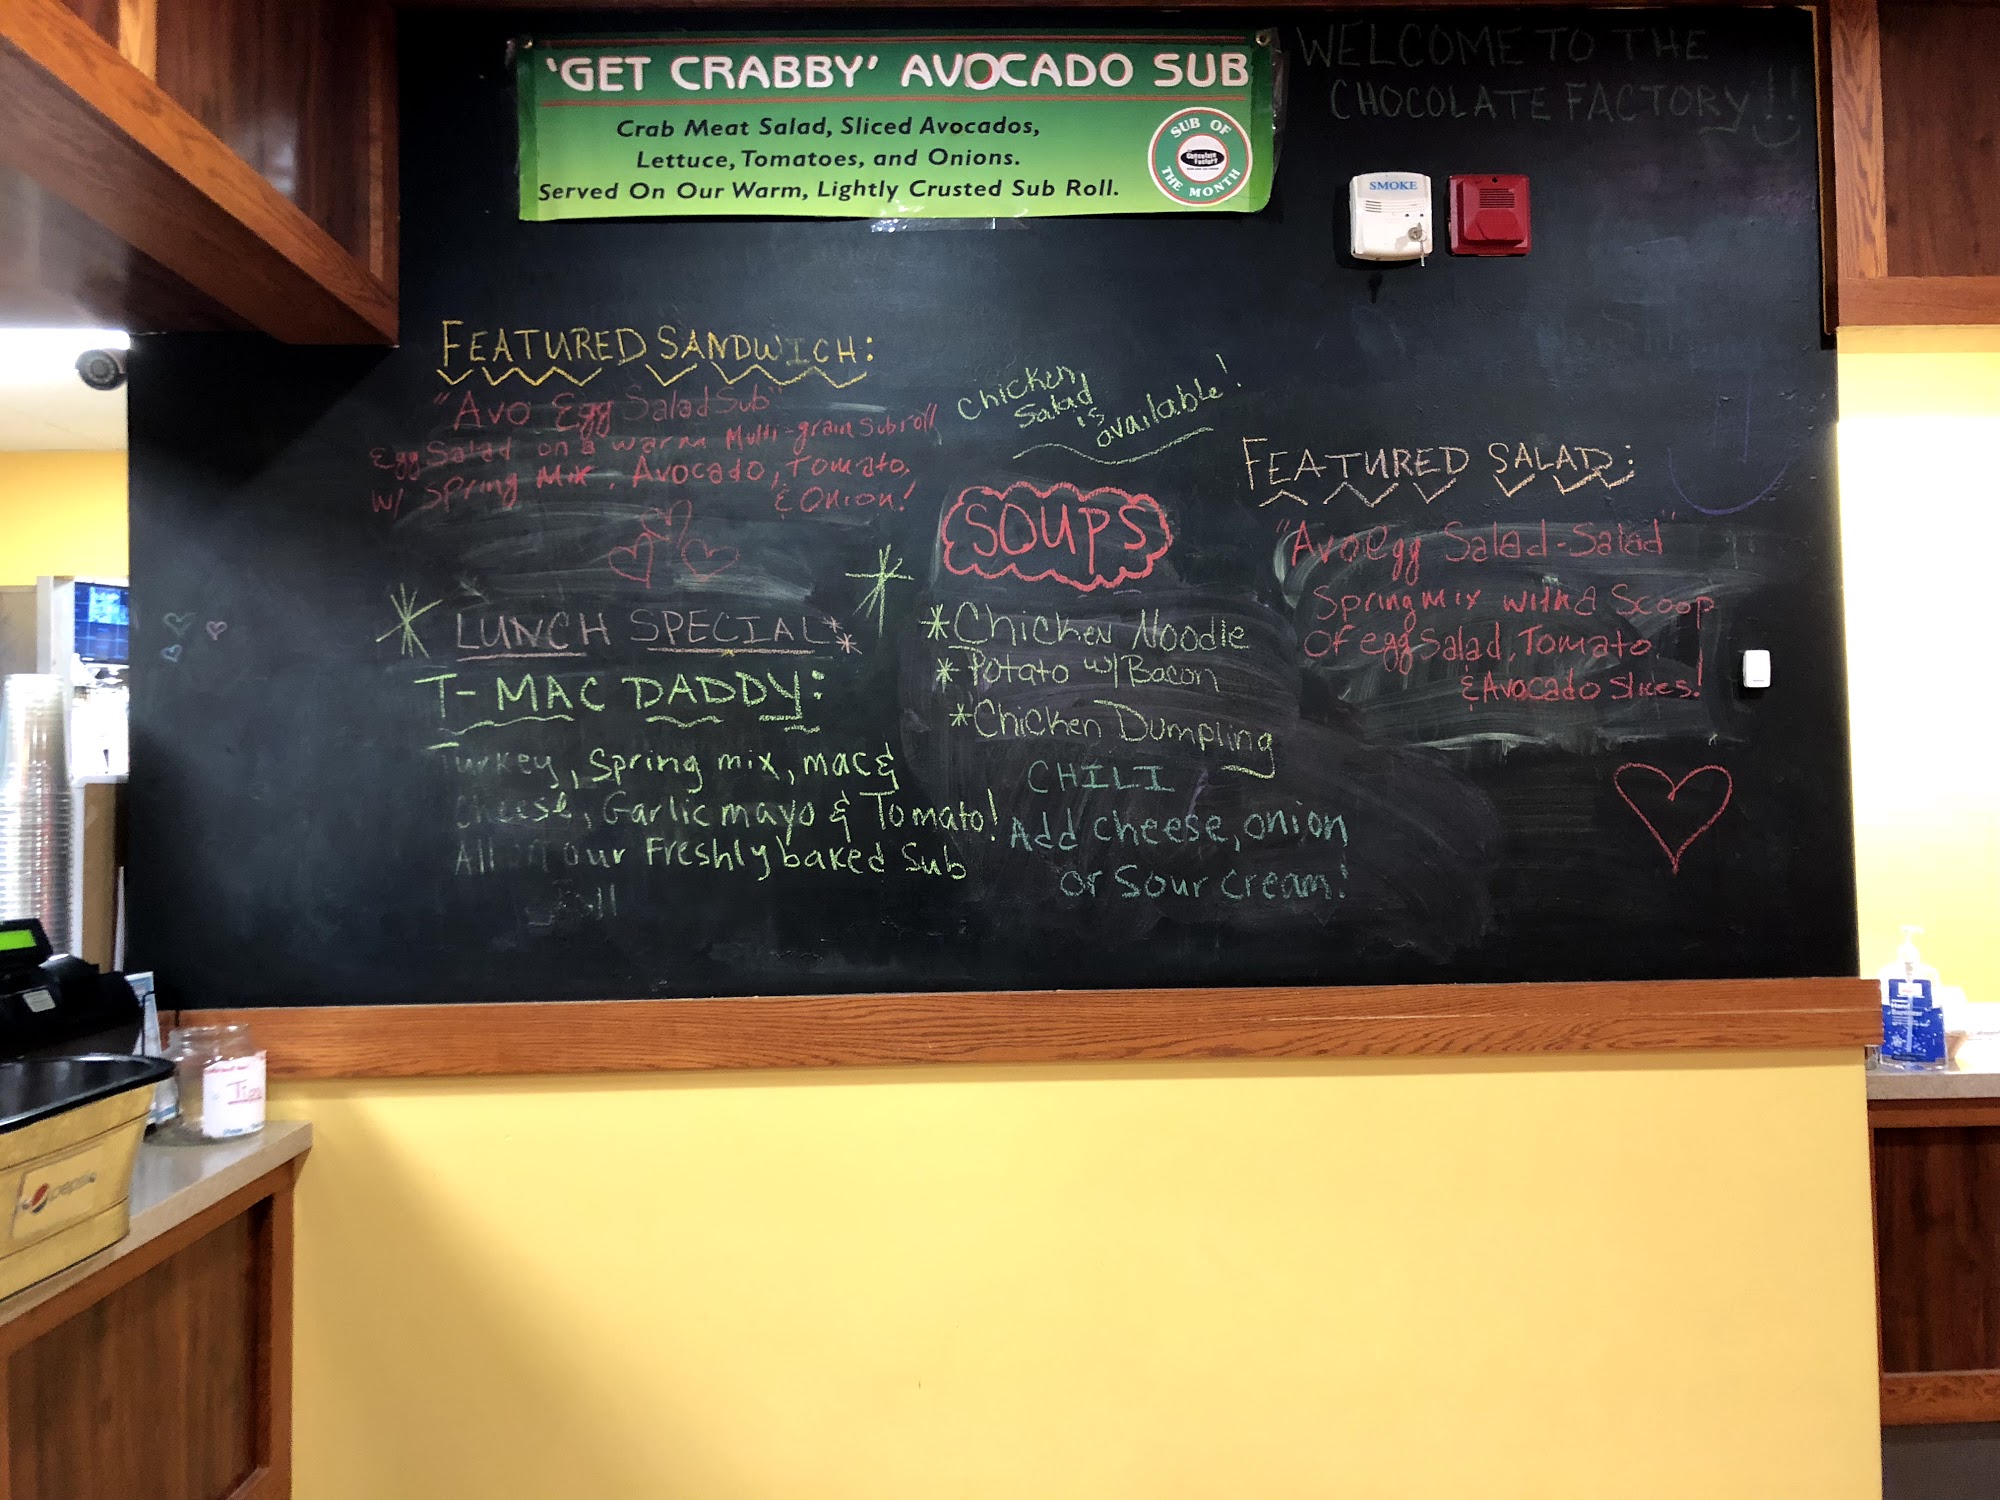 'GET CRABBY' AVOCADO SUB
Crab Meat Salad, Sliced Avocados,
Lettuce, Tomatoes, and Onions.
Served On Our Warm, Lightly Crusted Sub Roll.
SUB OF
Chocolate Factory
THE MONTH
WELCOME TO THE
CHOCOLATE FACTORY!!
SMOKE
FEATURED SANDWICH:
"Avo Egg Salad Sub"
Egg Salad on a warm Multi-grain Sub roll
w/ Spring Mix, Avocado, Tomato,
& Onion!
Chicken
Salad
is
available!
LUNCH SPECIAL
T-MAC DADDY:
Turkey, Spring mix, mac &
Cheese, Garlic mayo & Tomato!
All on our Freshly baked Sub
Roll
SOUPS
*Chicken Noodle
*Potato w/ Bacon
*Chicken Dumpling
CHILI
Add cheese, onion
or Sour cream!
FEATURED SALAD:
"Avo Egg Salad-Salad"
Spring mix with a Scoop
of egg Salad, Tomato,
& Avocado Slices!
Tips
pepsi